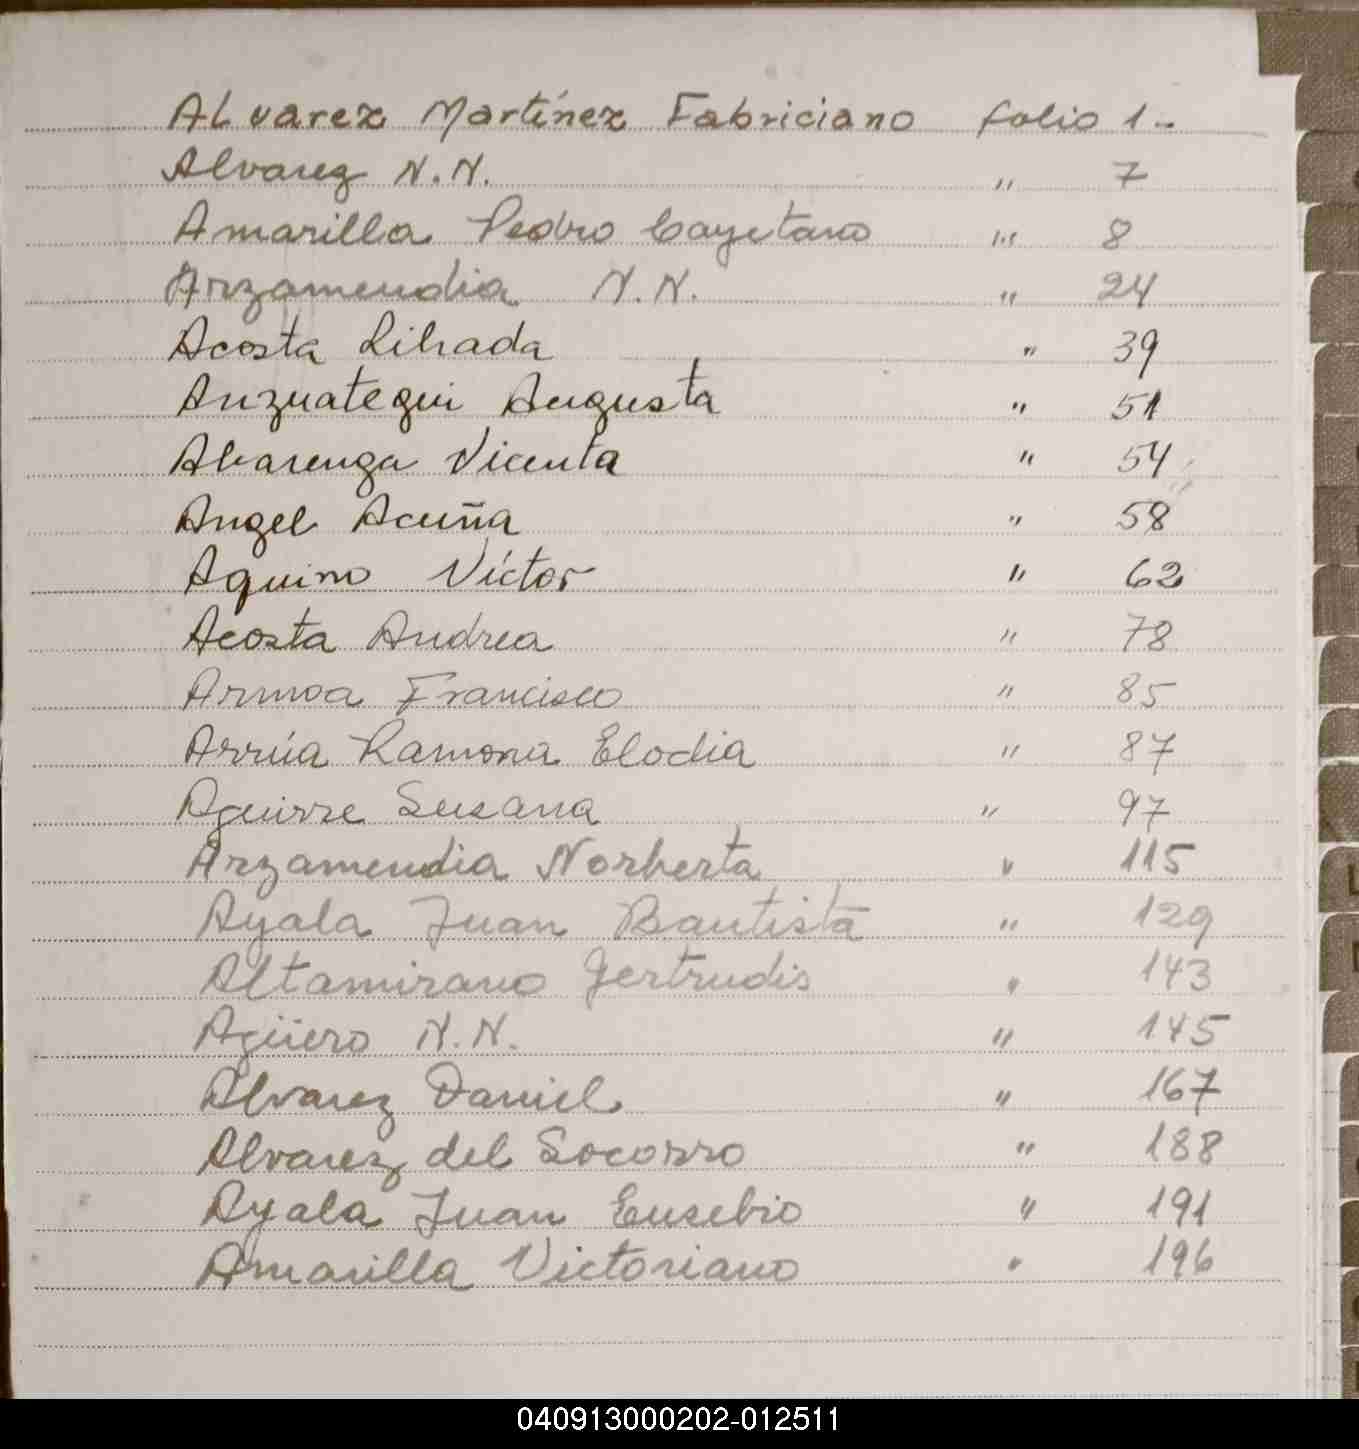 Alvarez Martínez Fabriciano folio 1-
Alvarez N.N. " 7
Amarilla Pedro Cayetano " 8
Arzamendia N.N. " 24
Acosta Librada " 39
Anzuategui Augusta " 51
Alvarenga Vicenta " 54
Angel Acuña " 58
Aquino Víctor " 62
Acosta Andrea " 78
Armoa Francisco " 85
Arrúa Ramona Elodia " 87
Aguirre Susana " 97
Arzamendia Norberta " 115
Ayala Juan Bautista " 129
Altamirano Gertrudis " 143
Agüero N.N. " 145
Alvarez Daniel " 167
Alvarez del Socorro " 188
Ayala Juan Eusebio " 191
Amarilla Victoriano " 196
040913000202-012511